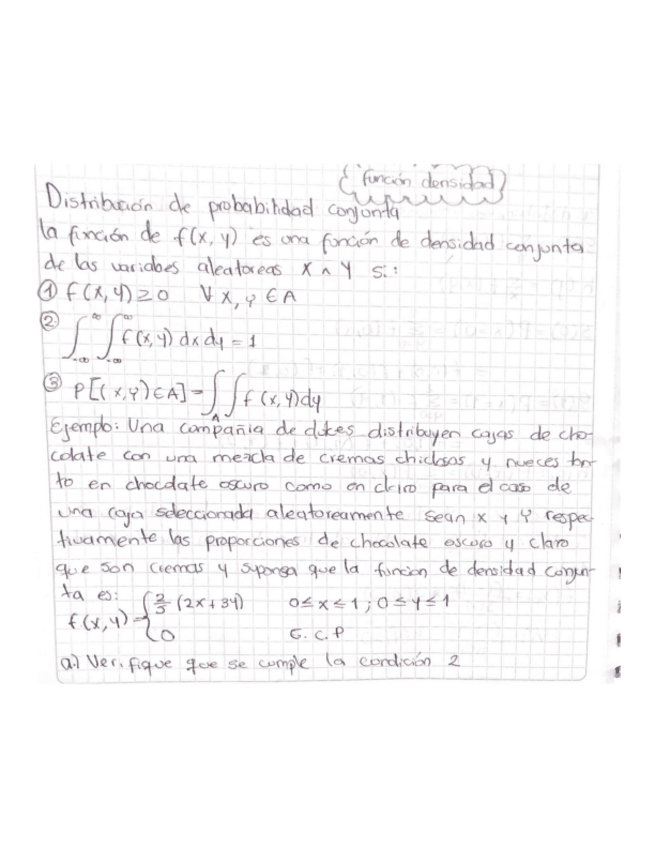 función densidad
Distribución de probabilidad conjunta
la función de f(x, y) es una función de densidad conjunta
de las variabes aleatoreas X ∧ Y si:
① f(x,y) ≥ 0 ∀ x, y ∈ A
② ∫_{-∞}^{∞} ∫_{-∞}^{∞} f(x,y) dx dy = 1
③ P[(x,y) ∈ A] = ∫_A ∫ f(x,y) dy
Ejemplo: Una compañia de dulces distribuyen cajas de cho-
colate con una mezcla de cremas chiclosos y nueces tan-
to en chocolate oscuro como en claro para el caso de
una caja seleccionada aleatoreamente sean x y Y respec-
tivamente las proporciones de chocolate oscuro y claro
que son cremas y suponga que la funcion de densidad conjun-
ta es:
f(x,y) = { 2/5 (2x + 3y) 0 ≤ x ≤ 1 ; 0 ≤ y ≤ 1
0 E. C. P
a.) Verifique que se cumple la condición 2